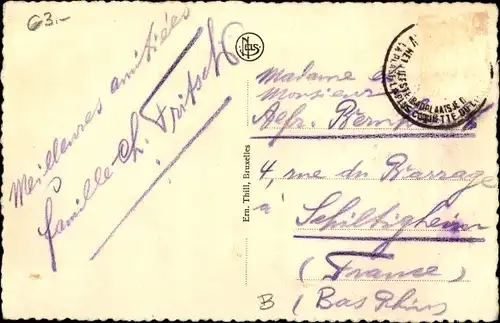 63.-
Meilleures amitiées
famille Ch. Fritsch
Ern. Thill, Bruxelles
Madame et
Monsieur
Alfr.
4, rue du Barrage
à
Schiltigheim
(France)
(Bas Rhin)
B